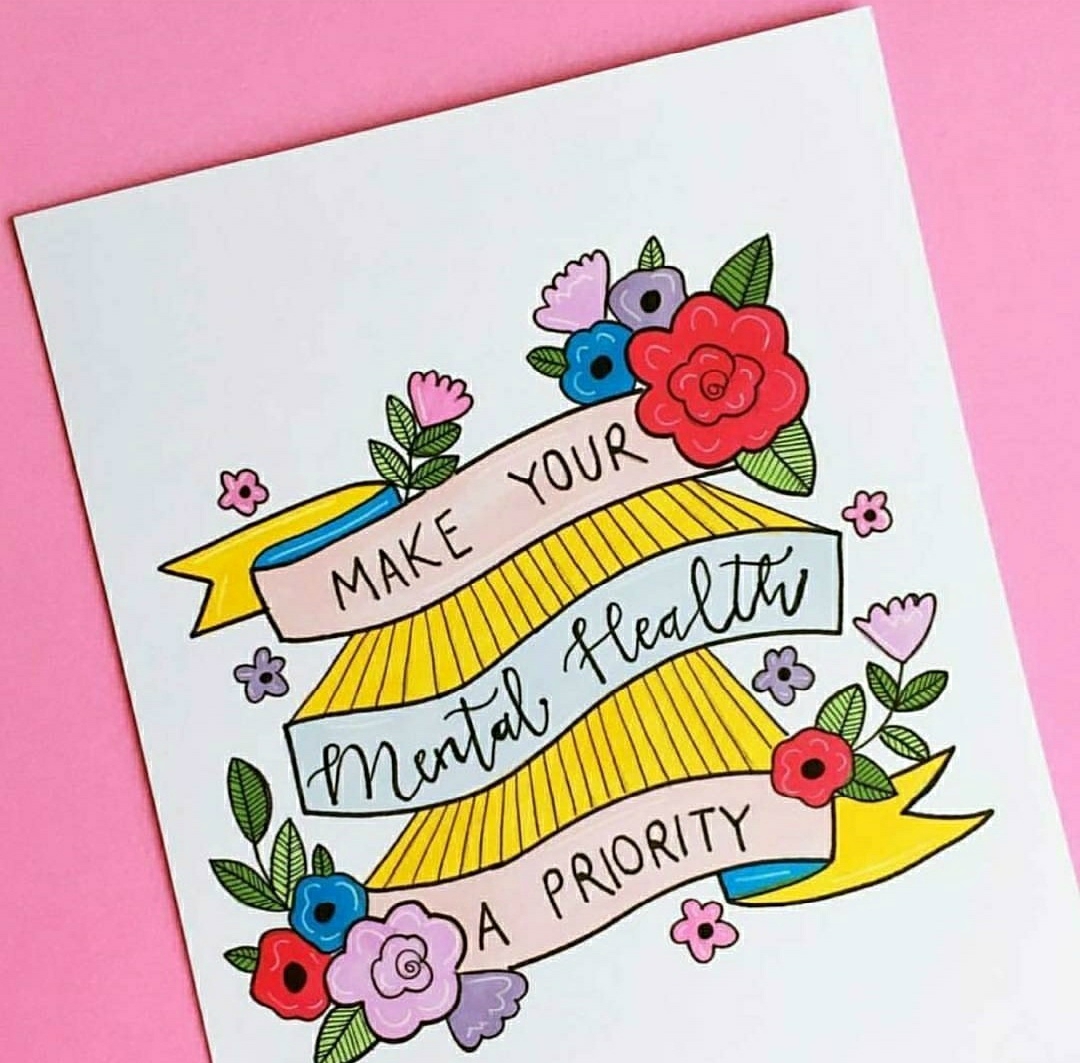 MAKE YOUR
Mental Health
A PRIORITY